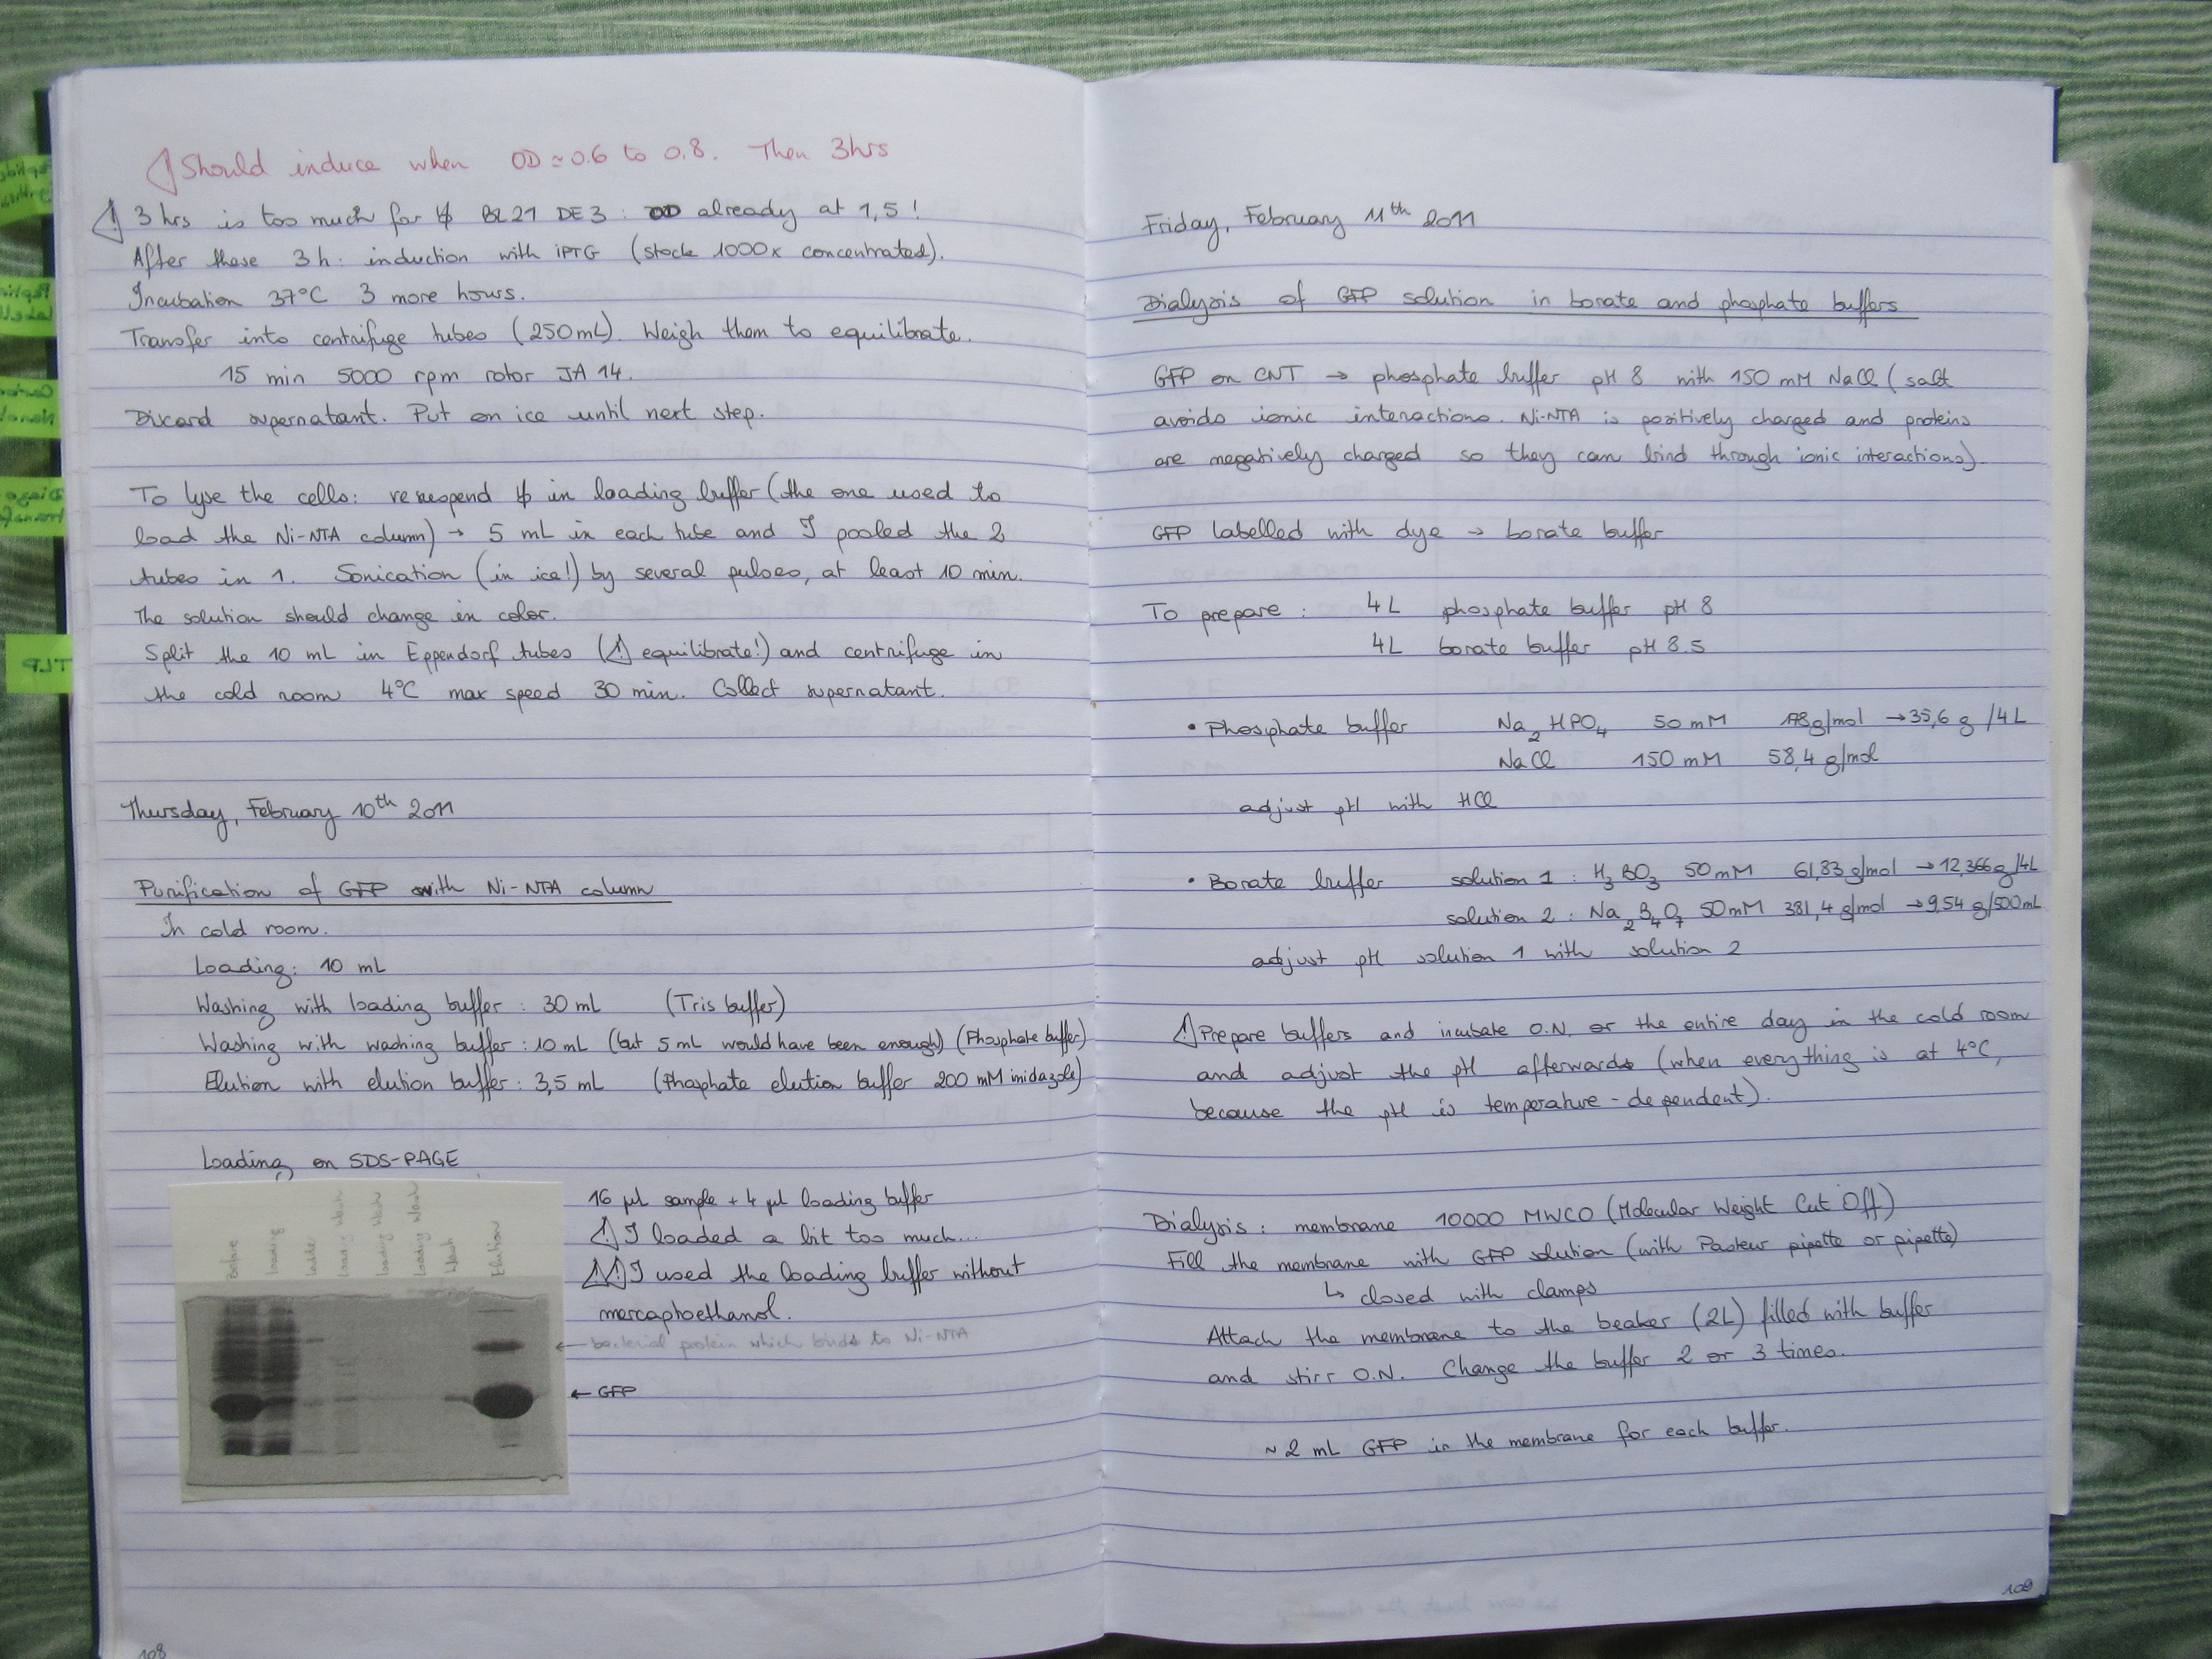 Should induce when OD ≃ 0.6 to 0.8. Then 3hrs
3 hrs is too much for BL21 DE3 : OD already at 1,5 !
After these 3 h : induction with iPTG (stock 1000x concentrated).
Incubation 37°C 3 more hours.
Transfer into centrifuge tubes (250 mL). Weigh them to equilibrate.
15 min 5000 rpm rotor JA 14.
Discard supernatant. Put on ice until next step.
To lyse the cells : resuspend in loading buffer (the one used to
load the Ni-NTA column) → 5 mL in each tube and I pooled the 2
tubes in 1. Sonication (in ice!) by several pulses, at least 10 min.
The solution should change in color.
Split the 10 mL in Eppendorf tubes (! equilibrate!) and centrifuge in
the cold room 4°C max speed 30 min. Collect supernatant.
Thursday, February 10th 2011
Purification of GFP with Ni-NTA column
In cold room.
Loading : 10 mL
Washing with loading buffer : 30 mL (Tris buffer)
Washing with washing buffer : 10 mL (but 5 mL would have been enough) (Phosphate buffer)
Elution with elution buffer : 3,5 mL (Phosphate elution buffer 200 mM imidazole)
Loading on SDS-PAGE
Before
Loading
Ladder
Loading Wash
Loading Wash
Loading Wash
Wash
Elution
16 µl sample + 4 µl loading buffer
! I loaded a bit too much...
!! I used the loading buffer without
mercaptoethanol.
← bacterial protein which binds to Ni-NTA
← GFP
108
Friday, February 11th 2011
Dialysis of GFP solution in borate and phosphate buffers
GFP on CNT → phosphate buffer pH 8 with 150 mM NaCl (salt
avoids ionic interactions. Ni-NTA is positively charged and proteins
are negatively charged so they can bind through ionic interactions).
GFP labelled with dye → borate buffer
To prepare : 4 L phosphate buffer pH 8
4 L borate buffer pH 8.5
• Phosphate buffer Na2HPO4 50 mM 178 g/mol → 35,6 g /4 L
NaCl 150 mM 58,4 g/mol
adjust pH with HCl
• Borate buffer solution 1 : H3BO3 50 mM 61,83 g/mol → 12,366 g/4L
solution 2 : Na2B4O7 50 mM 381,4 g/mol → 9,54 g/500mL
adjust pH solution 1 with solution 2
! Prepare buffers and incubate O.N. or the entire day in the cold room
and adjust the pH afterwards (when everything is at 4°C,
because the pH is temperature-dependent).
Dialysis : membrane 10000 MWCO (Molecular Weight Cut Off)
Fill the membrane with GFP solution (with Pasteur pipette or pipette)
↳ closed with clamps
Attach the membrane to the beaker (2L) filled with buffer
and stirr O.N. Change the buffer 2 or 3 times.
~ 2 mL GFP in the membrane for each buffer.
109